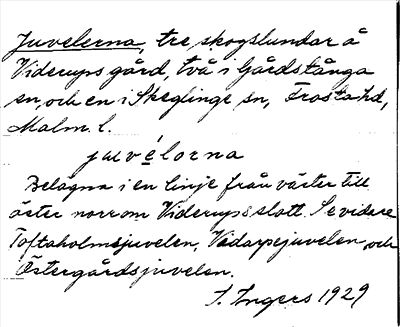 Juvelerna, tre skogslundar å
Viderups gård, två i Gårdstånga
sn, och en i Skeglinge sn, Frosta hd,
Malm. l.
juvélorna
Belägna i en linje från väster till
öster norr om Viderups slott. Se vidare
Toftaholmsjuvelen, Vedarpsjuvelen, och
Östergårdsjuvelen.
I. Ingers 1929